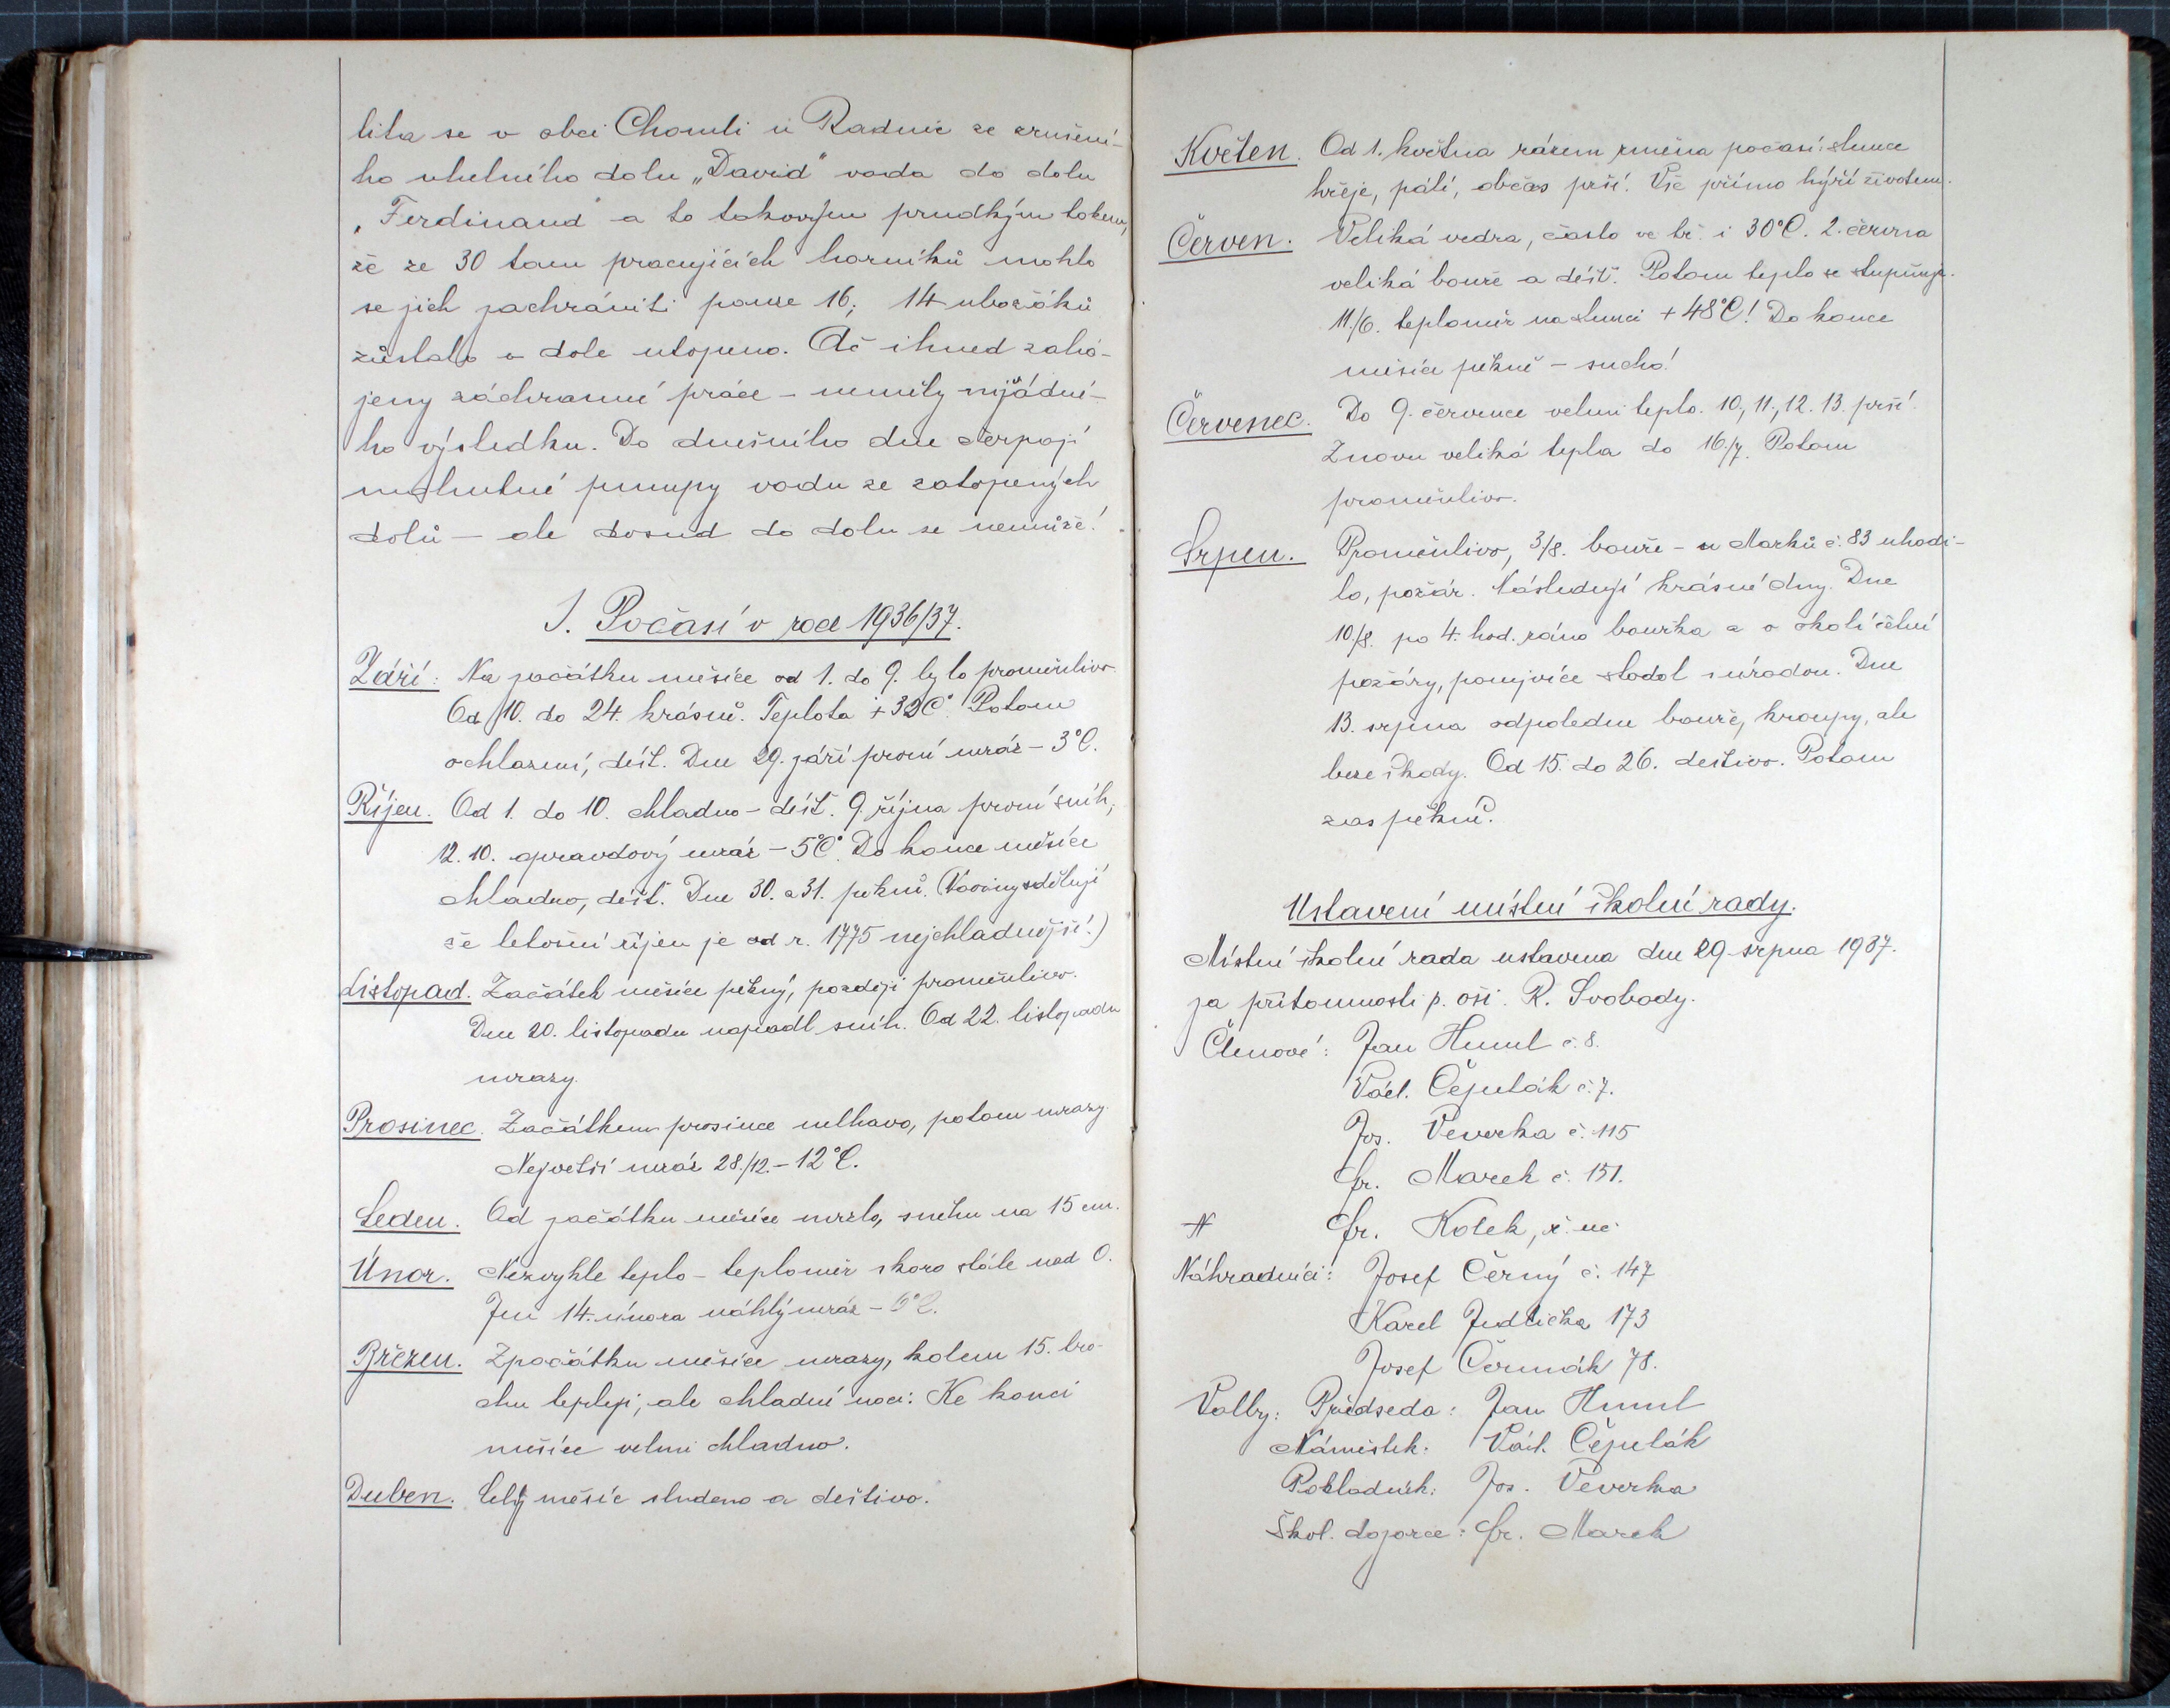 lila se v obci Chomli u Radnic ze zrušené-
ho uhelného dolu „David" voda do dolu
„Ferdinand" a to takovým prudkým tokem,
že ze 30 tam pracujících horníků mohlo
se jich zachrániti pouze 16; 14 ubožáků
zůstalo v dole utopeno. Ač ihned zahá-
jeny záchranné práce – neměly nijakžádné-
ho výsledku. Do dnešního dne čerpají
mohutné pumpy vodu ze zatopených
dolů – ale dosud do dolu se nemůže!
I. Počasí v roce 1936/37.
Září: Na počátku měsíce od 1. do 9. bylo proměnlivo.
Od 10. do 24. krásně. Teplota + 32C°. Potom
ochlazení, déšť. Dne 29. září první mráz – 3°C.
Říjen. Od 1. do 10. chladno – déšť. 9. října první sníh,
12. 10. opravdový mráz – 5°C. Do konce měsíce
chladno, déšť. Dne 30. a 31. pěkně. (Noviny sdělují
že letošní říjen je od r. 1775 nejchladnější!)
Listopad. Začátek měsíce pěkný, později proměnlivo.
Dne 20. listopadu napadl sníh. Od 22. listopadu
mrazy.
Prosinec. Začátkem prosince mlhavo, potom mrazy.
Největší mráz 28./12. – 12°C.
Leden. Od začátku měsíce mrzlo, sněhu na 15 cm.
Únor. Nezvykle teplo – teploměr skoro stále nad 0.
Jen 14. února náhlý mráz – 6°C.
Březen. Zpočátku měsíce mrazy, kolem 15. tro-
chu tepleji, ale chladné noci. Ke konci
měsíce velmi chladno.
Duben. Celý měsíc studeno a deštivo.
Květen. Od 1. května rázem změna počasí: slunce
hřeje, pálí, občas prší. Vše přímo hýří životem.
Červen. Veliká vedra, často ve tř. i 30°C. 2. června
veliká bouře a déšť. Potom teplo se stupňuje.
11./6. teploměr na slunci + 48°C! Do konce
měsíce pěkně – sucho!
Červenec. Do 9. července velmi teplo. 10., 11., 12. 13. prší.
Znovu veliká tepla do 16./7. Potom
proměnlivo.
Srpen. Proměnlivo, 3/8. bouře – u Marků č. 83 uhodi-
lo, požár. Následují krásné dny. Dne
10./8. po 4. hod. ráno bouřka a v okolí četné
požáry, ponejvíce stodol s úrodou. Dne
13. srpna odpoledne bouře, kroupy, ale
beze škody. Od 15. do 26. deštivo. Potom
zas pěkně.
Ustavení místní školní rady.
Místní školní rada ustavena dne 29. srpna 1937.
za přítomnosti p. oši. R. Svobody.
Členové: Jan Huml č. 8.
Václ. Čepelák č. 7.
Jos. Veverka č. 115
Fr. Marek č. 151.
Fr. Kotek, ř. uč.
Náhradníci: Josef Černý č. 147
Karel Jedlička 173
Josef Čermák 78.
Volby: Předseda: Jan Huml
Náměstek: Václ. Čepelák
Pokladník: Jos. Veverka
Škol. dozorce: Fr. Marek